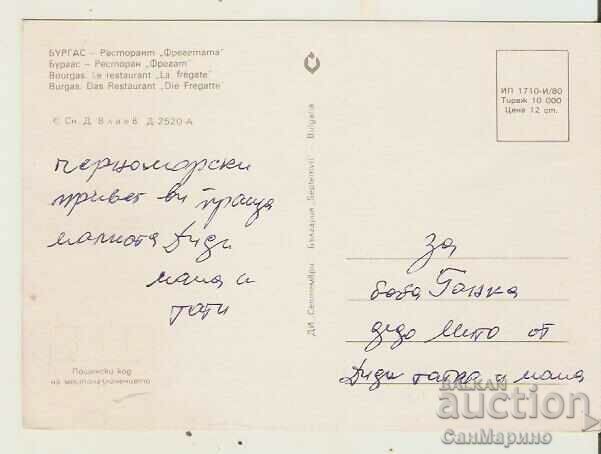 БУРГАС – Ресторант „Фрегатата"
Бургас – Ресторан „Фрегат"
Bourgas. Le restaurant „La frégate"
Burgas. Das Restaurant „Die Fregatte"
© Сн. Д. Влаев Д 2520-А
черноморски
привет ви праща
малката Диди
мама и
тати
Пощенски код
на местоположението
ДИ „Септември" България „Septemvri" – Bulgaria
ИП 1710-И/80
Тираж 10 000
Цена 12 ст.
За
баба Ганка
дядо Мито от
Диди татко и мама
BALKAN
auction
СанМарино